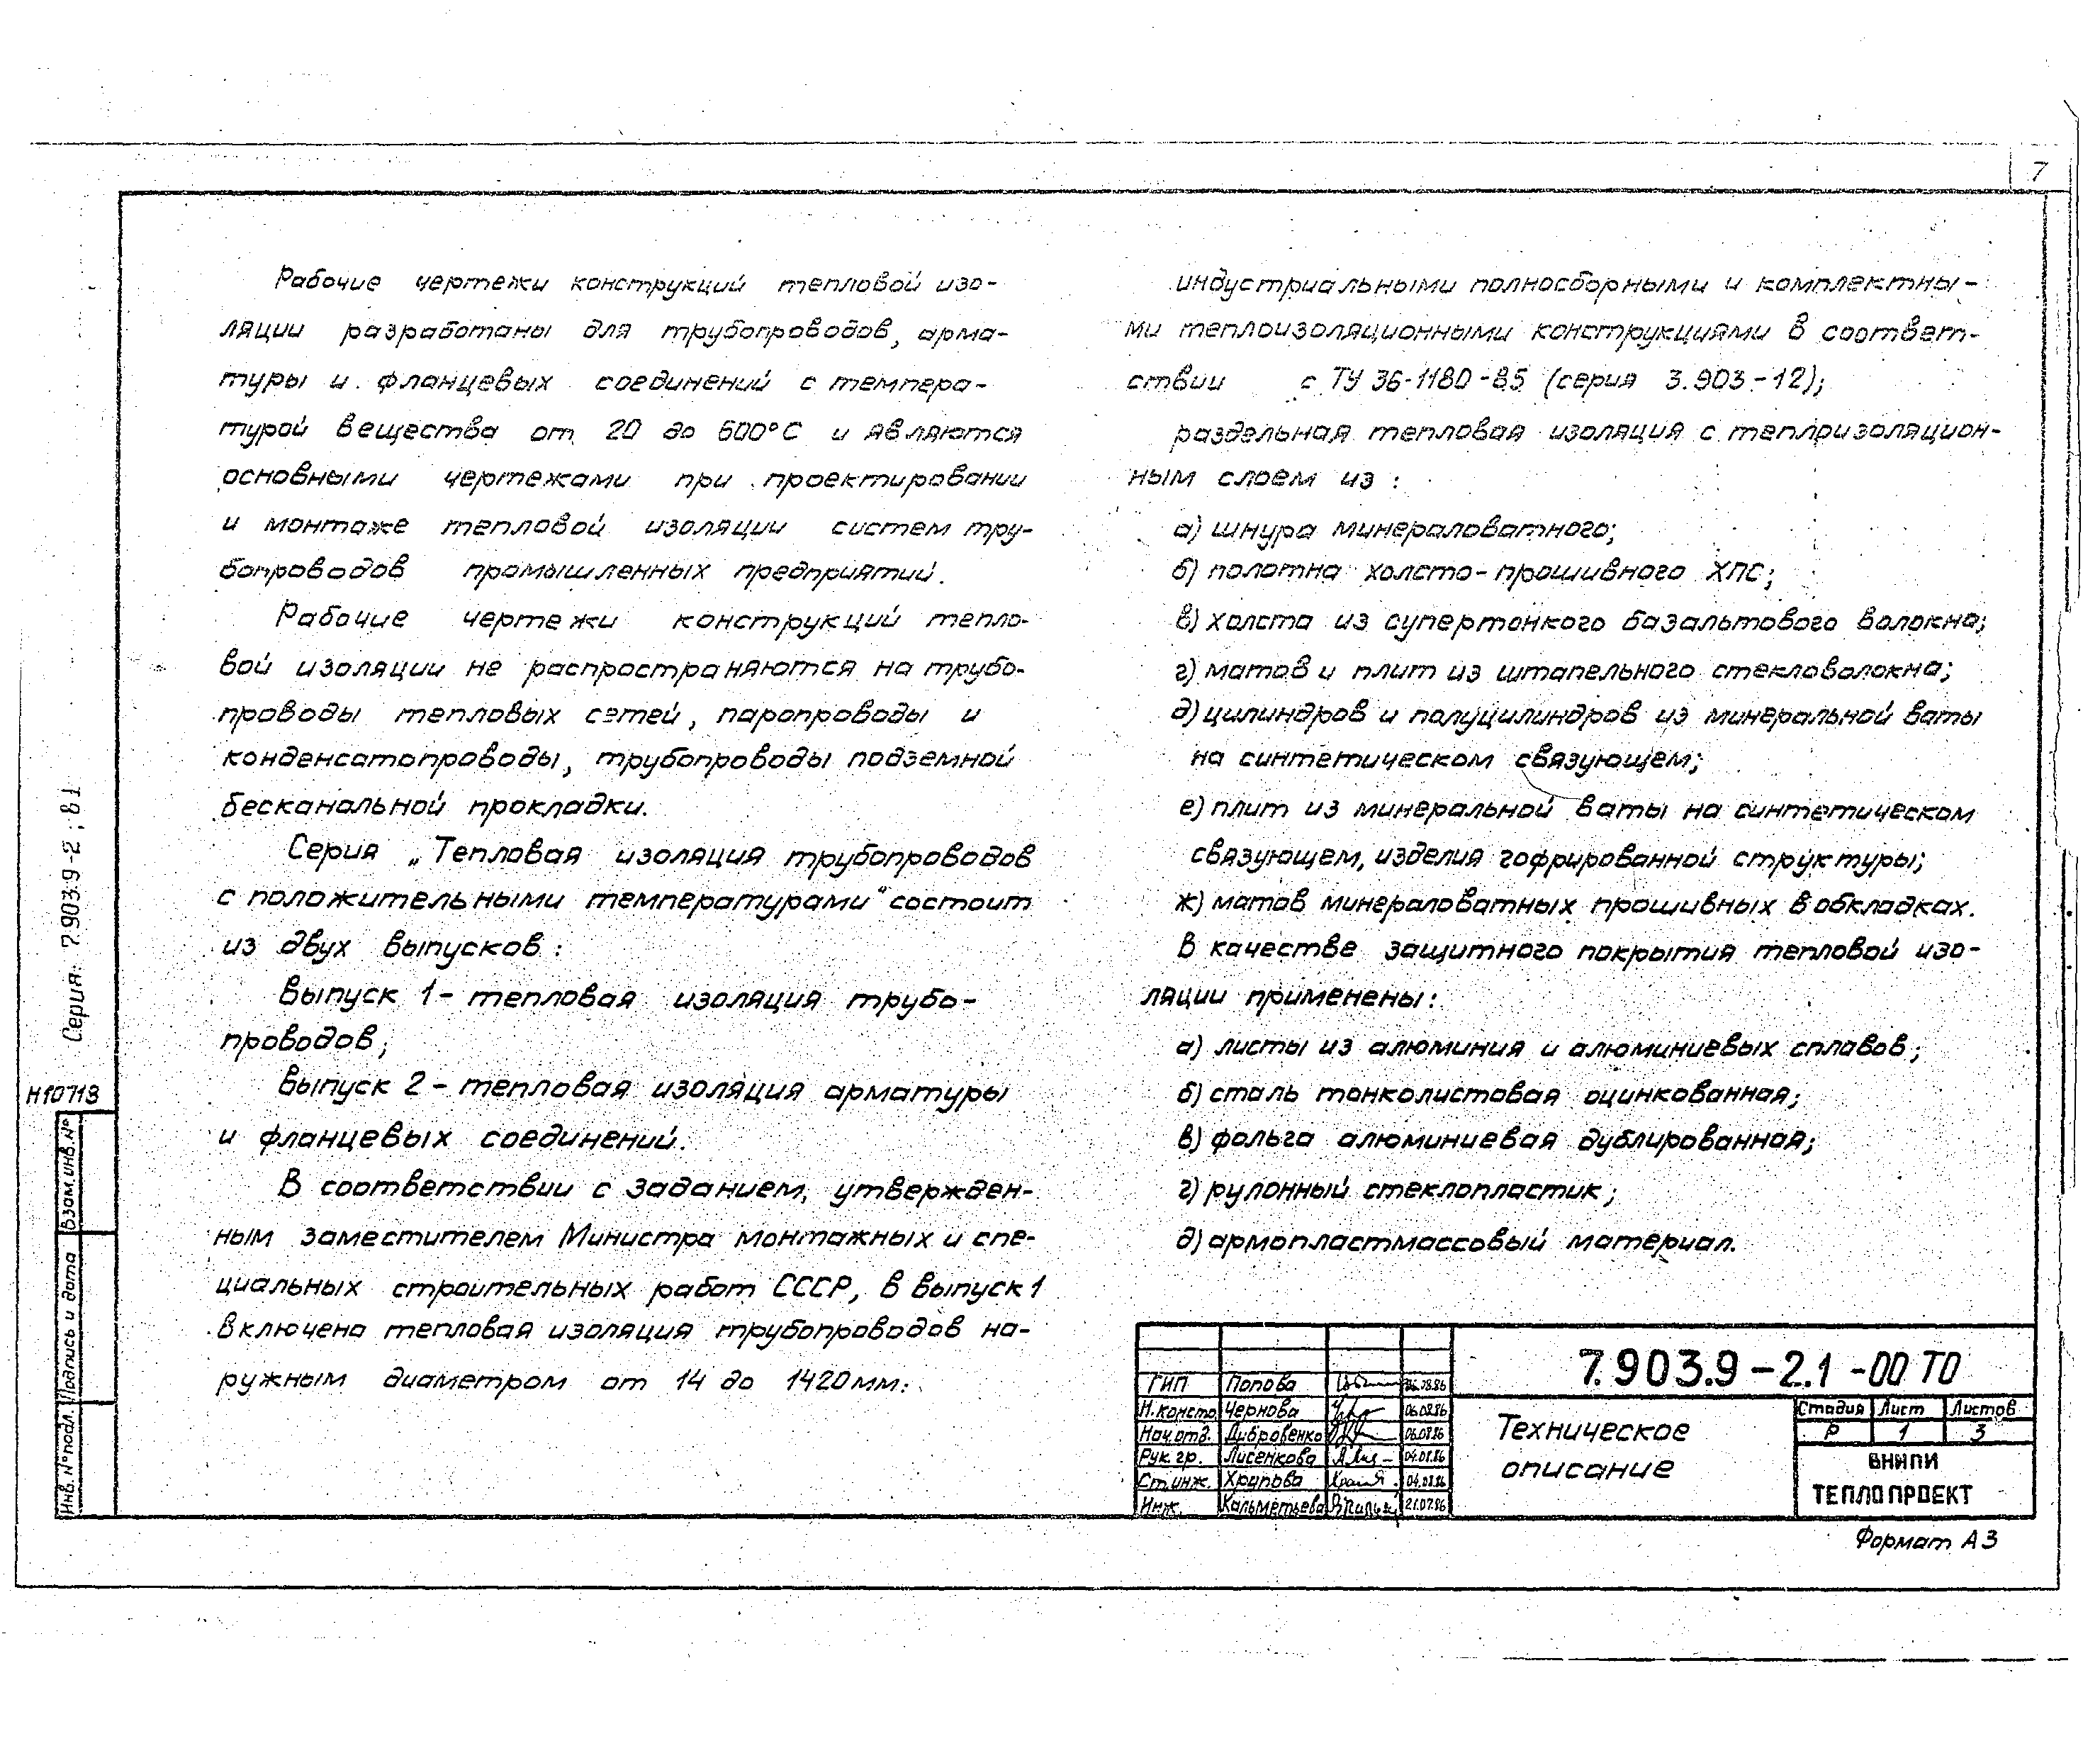 7
Рабочие чертежи конструкций тепловой изо-
ляции разработаны для трубопроводов, арма-
туры и фланцевых соединений с темпера-
турой вещества от 20 до 600°С и являются
основными чертежами при проектировании
и монтаже тепловой изоляции систем тру-
бопроводов промышленных предприятий.
Рабочие чертежи конструкций тепло-
вой изоляции не распространяются на трубо-
проводы тепловых сетей, паропроводы и
конденсатопроводы, трубопроводы подземной
бесканальной прокладки.
Серия „Тепловая изоляция трубопроводов
с положительными температурами" состоит
из двух выпусков:
Выпуск 1 - тепловая изоляция трубо-
проводов;
Выпуск 2 - тепловая изоляция арматуры
и фланцевых соединений.
В соответствии с заданием, утвержден-
ным заместителем Министра монтажных и спе-
циальных строительных работ СССР, в выпуск 1
включена тепловая изоляция трубопроводов на-
ружным диаметром от 14 до 1420 мм:
индустриальными полносборными и комплектны-
ми теплоизоляционными конструкциями в соответ-
ствии с ТУ 36-1180-85 (серия 3.903-12);
раздельная тепловая изоляция с теплоизоляцион-
ным слоем из:
а) шнура минераловатного;
б) полотна холсто-прошивного ХПС;
в) холста из супертонкого базальтового волокна;
г) матов и плит из штапельного стекловолокна;
д) цилиндров и полуцилиндров из минеральной ваты
на синтетическом связующем;
е) плит из минеральной ваты на синтетическом
связующем, изделия гофрированной структуры;
ж) матов минераловатных прошивных в обкладках.
В качестве защитного покрытия тепловой изо-
ляции применены:
а) листы из алюминия и алюминиевых сплавов;
б) сталь тонколистовая оцинкованная;
в) фольга алюминиевая дублированная;
г) рулонный стеклопластик;
д) армопластмассовый материал.
Серия 7.903.9-2; В1
Н10713
Взам.инв.№
Подпись и дата
Инв.№ подл.
7.903.9-2.1-00 ТО
Техническое
описание
Стадия Лист Листов
Р 1 3
ВНИПИ
ТЕПЛОПРОЕКТ
ГИП Попова
Н.контр. Чернова 06.08.86
Нач.отд. Дубровенко 06.08.86
Рук.гр. Лисенкова 04.08.86
Ст.инж. Храпова 04.08.86
Инж. Кальметьева 21.07.86
Формат А3